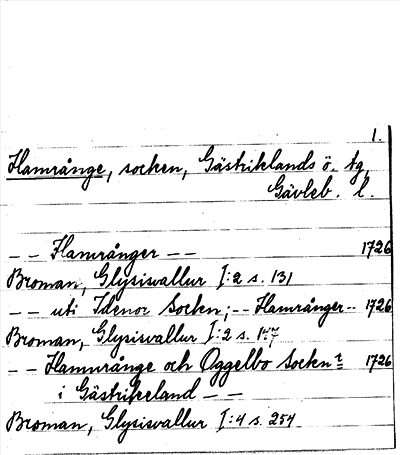 1.
Hamrånge, socken, Gästriklands ö. tg,
Gävleb. l.
-- Hamrånger -- 1726
Broman, Glysisvallur I:2 s. 131
-- uti Idenor Socken; -- Hamrånger -- 1726
Broman, Glysisvallur I:2 s.
-- Hamnrånge och Oggelbo Sockn:r 1726
i Gästrikeland --
Broman, Glysisvallur I:4 s. 254